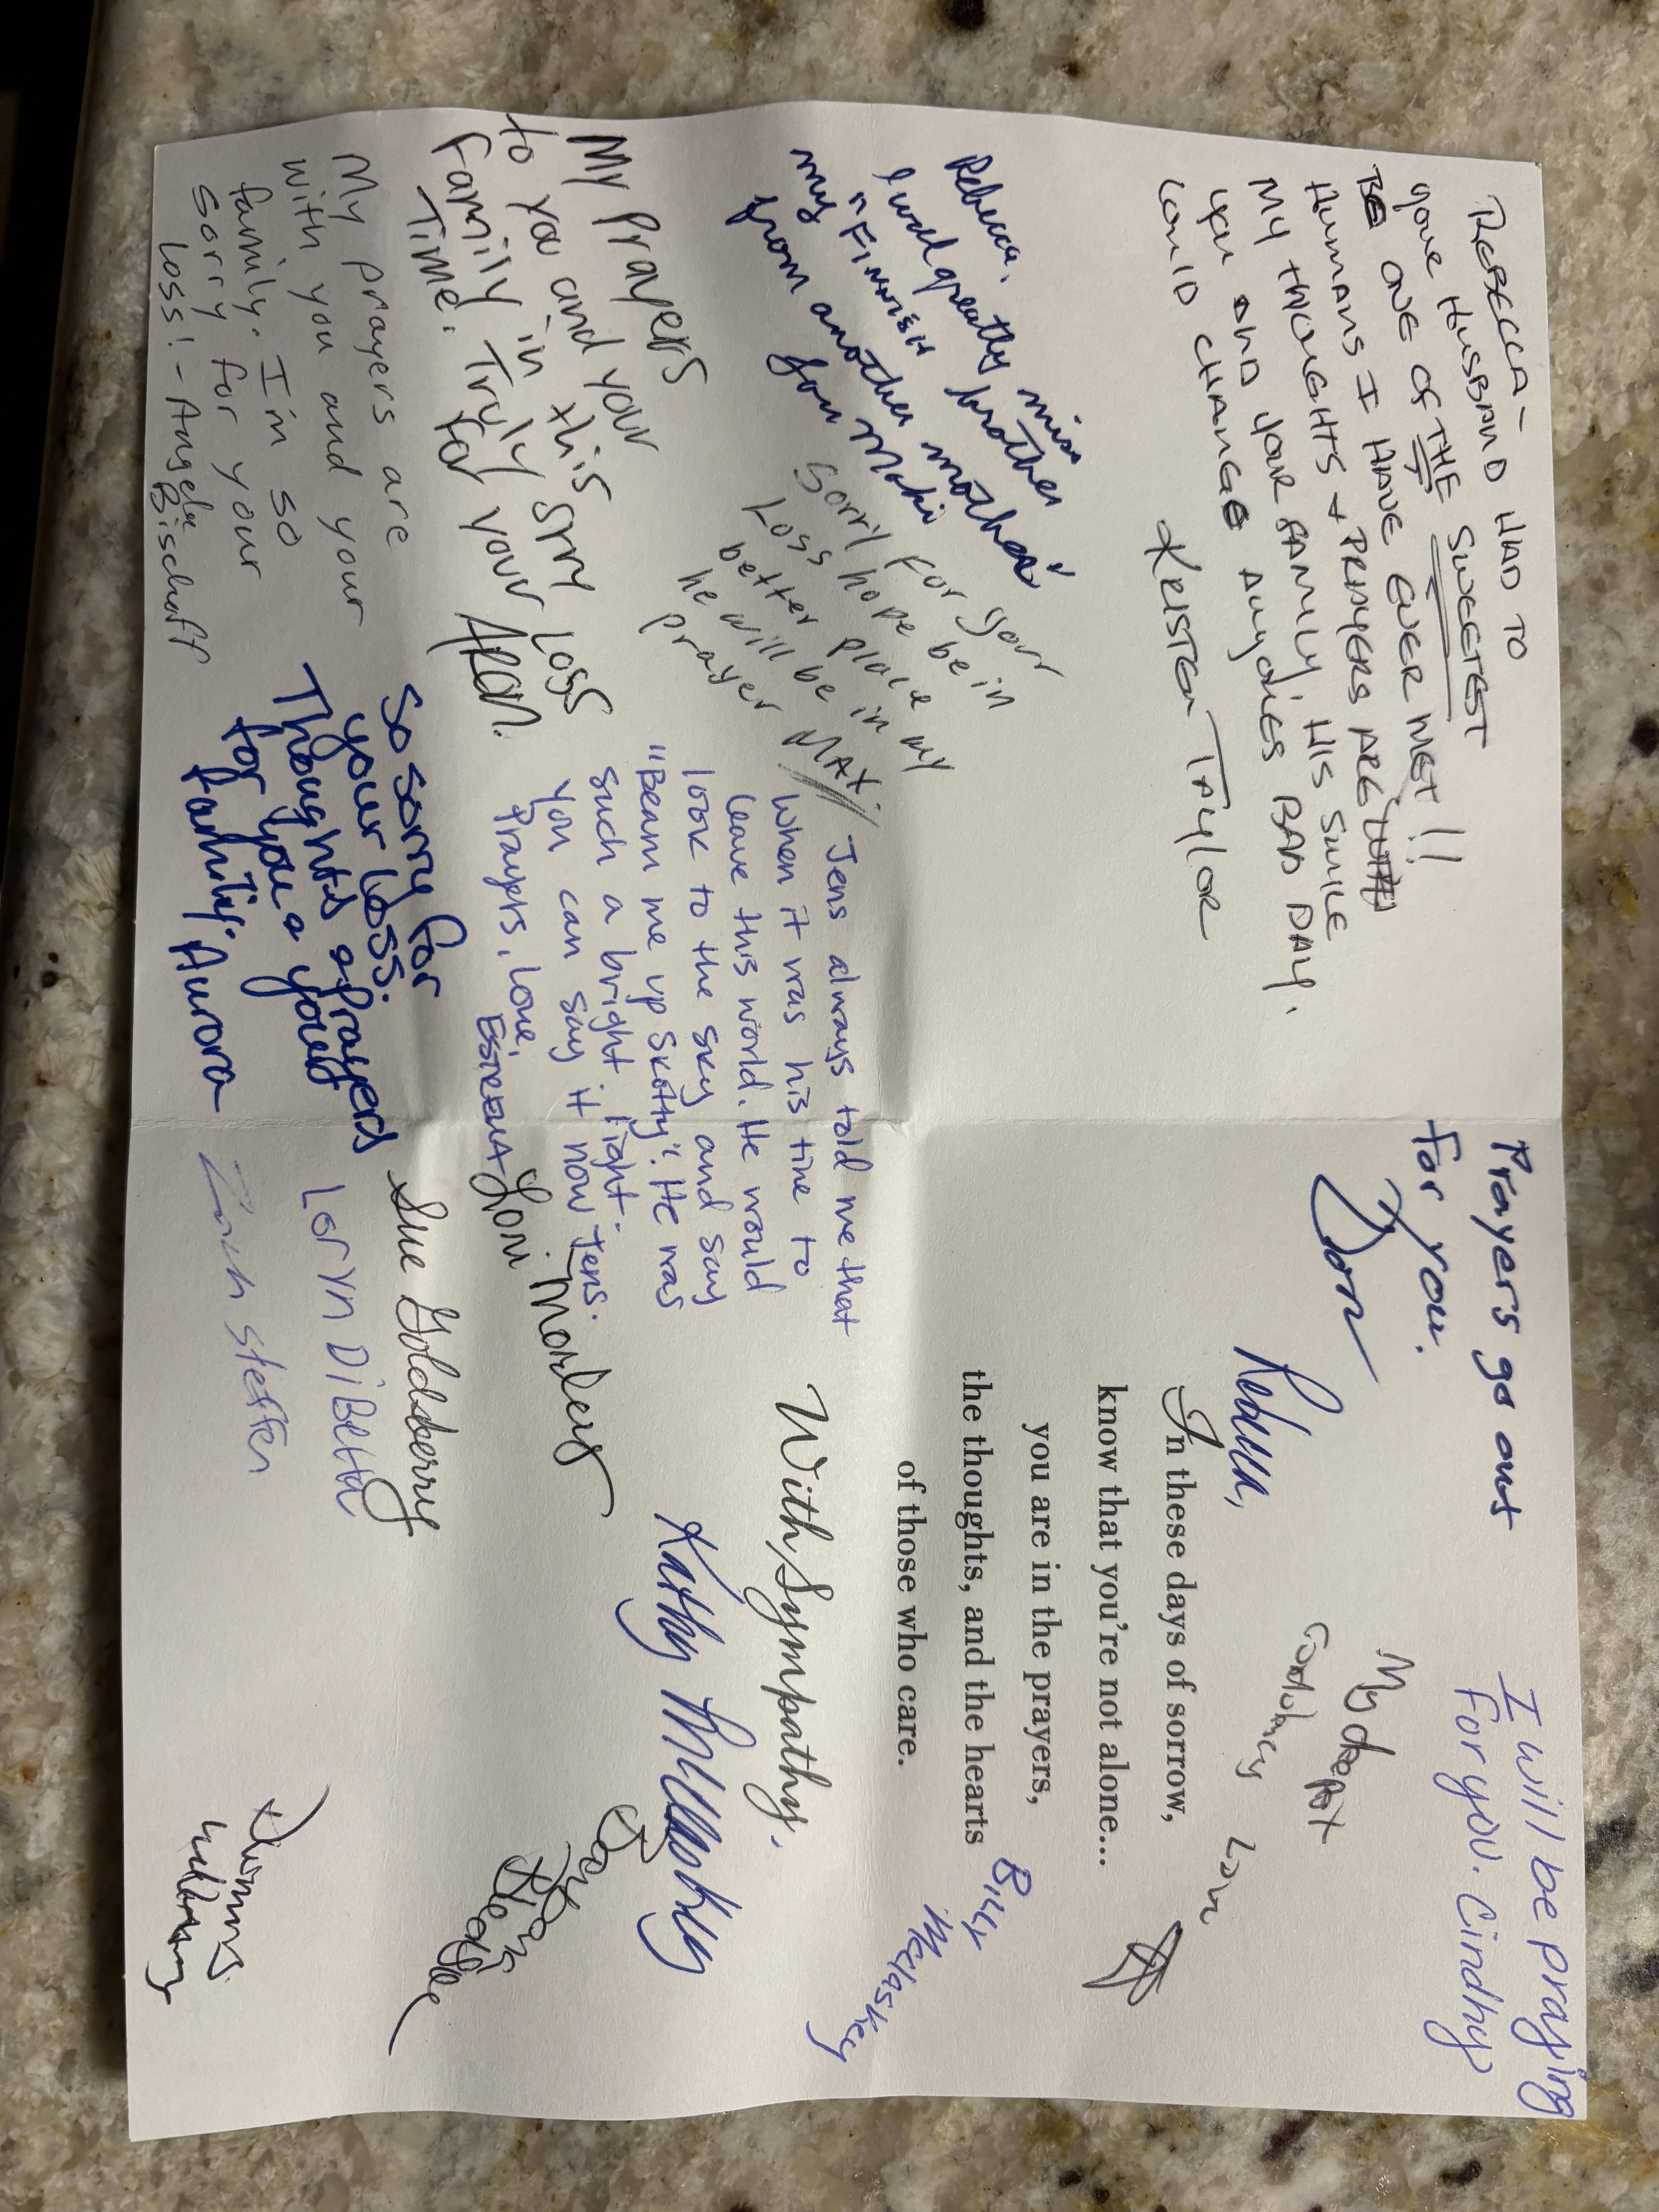 REBECCA -
YOUR HUSBAND HAD TO
BE ONE OF THE SWEETEST
HUMANS I HAVE EVER MET!!
MY THOUGHTS + PRAYERS ARE WITH
YOU AND YOUR FAMILY; HIS SMILE
COULD CHANGE ANYONES BAD DAY.
KRISTEN TAYLOR
Rebecca,
I will greatly miss
my "FINNISH brother
from another mother"
Jon Maki
Sorry for your
Loss hope be in
better place
he will be in my
prayer MAX.
My Prayers
to you and your
Family in this
Time. Truly Sorry
for your Loss
My prayers are
with you and your
family. I'm so
sorry for your
loss! - Angela
Bischoff
Jens always told me that
when it was his time to
leave this world. He would
look to the sky and say
"Beam me up Skotty". He was
such a bright light.
You can say it now Jens.
Prayers, Love,
So sorry for
your loss.
Thoughts & Prayers
for you & your
family. Aurora
Prayers go out
for you.
Don
I will be praying
for you. Cindhy
My deepest
Condolences
Rebecca,
In these days of sorrow,
know that you're not alone...
you are in the prayers,
the thoughts, and the hearts
of those who care.
Billy
McClaskey
With Sympathy,
Kathy McClaskey
Lori Morley
Sue Goldberry
Loryn DiBella
Zach Steffen
Barbara
Thomas